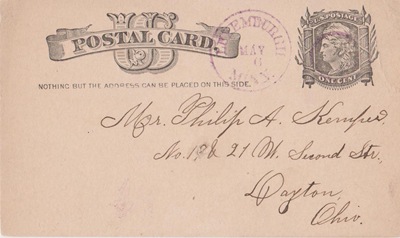 US
POSTAL CARD
NOTHING BUT THE ADDRESS CAN BE PLACED ON THIS SIDE.
MAY
6
U.S. POSTAGE
ONE CENT
Mr. Philip A. Kemper
No. 19 & 21 M. Second Str.
Dayton,
Ohio.